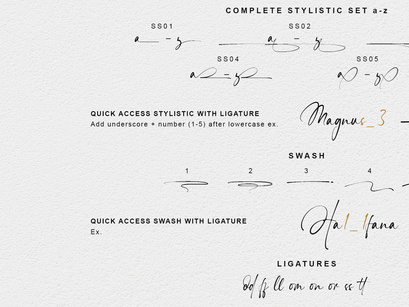 COMPLETE STYLISTIC SET a-z
SS01 SS02
a - y a - y
SS04 SS05
a - y a - y
QUICK ACCESS STYLISTIC WITH LIGATURE
Add underscore + number (1-5) after lowercase ex.
Magnus_3
SWASH
1 2 3 4
QUICK ACCESS SWASH WITH LIGATURE
Ex.
Hal_1fana
LIGATURES
dd ff ll om on or ss tt